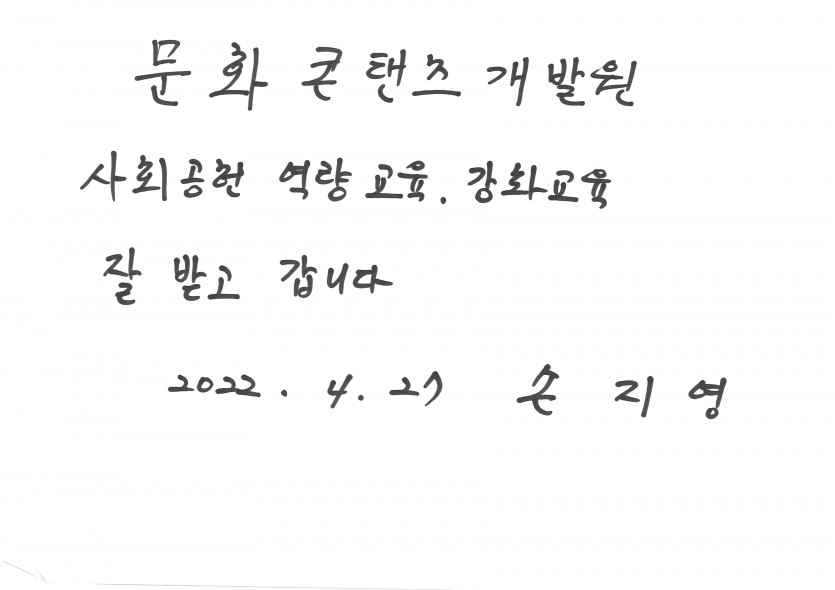 문화 콘텐츠 개발원
사회공헌 역량 교육. 강화교육
잘 받고 갑니다
2022. 4. 27 손지영